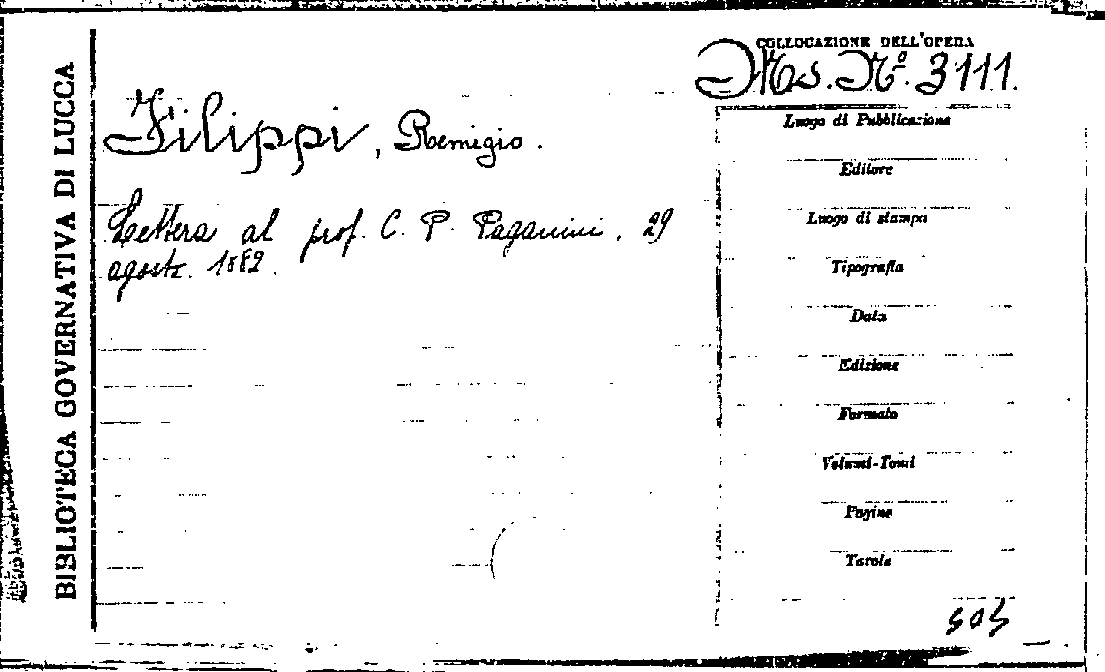 BIBLIOTECA GOVERNATIVA DI LUCCA
COLLOCAZIONE DELL'OPERA
Ms. Nº. 3111.
Filippi, Remigio.
Lettera al prof. C. P. Paganini, 29
agosto 1882.
Luogo di Pubblicazione
Editore
Luogo di stampa
Tipografia
Data
Edizione
Formato
Volumi-Tomi
Pagine
Tavole